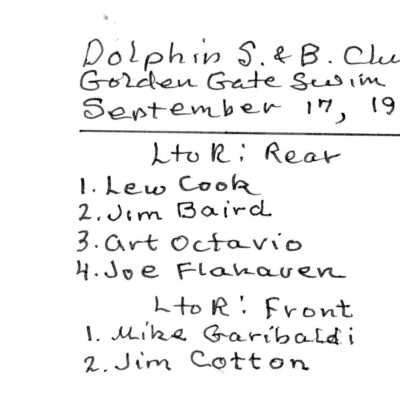 Dolphin S. & B. Clu
Golden Gate Swim
September 17, 19
L to R: Rear
1. Lew Cook
2. Jim Baird
3. Art Octavio
4. Joe Flahaven
L to R: Front
1. Mike Garibaldi
2. Jim Cotton